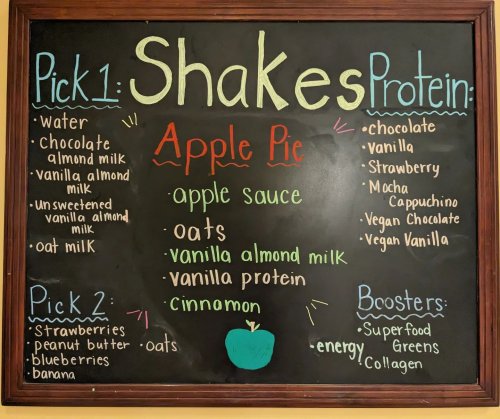 Shakes
Pick 1:
• Water
• Chocolate
almond milk
• vanilla almond
milk
• unsweetened
vanilla almond
milk
• oat milk
Apple Pie
• apple sauce
• oats
• vanilla almond milk
• vanilla protein
• cinnamon
Protein:
• chocolate
• vanilla
• Strawberry
• Mocha
Cappuchino
• Vegan Chocolate
• Vegan Vanilla
Pick 2:
• Strawberries
• peanut butter
• blueberries
• banana
• oats
Boosters:
• Superfood
Greens
• energy
• Collagen